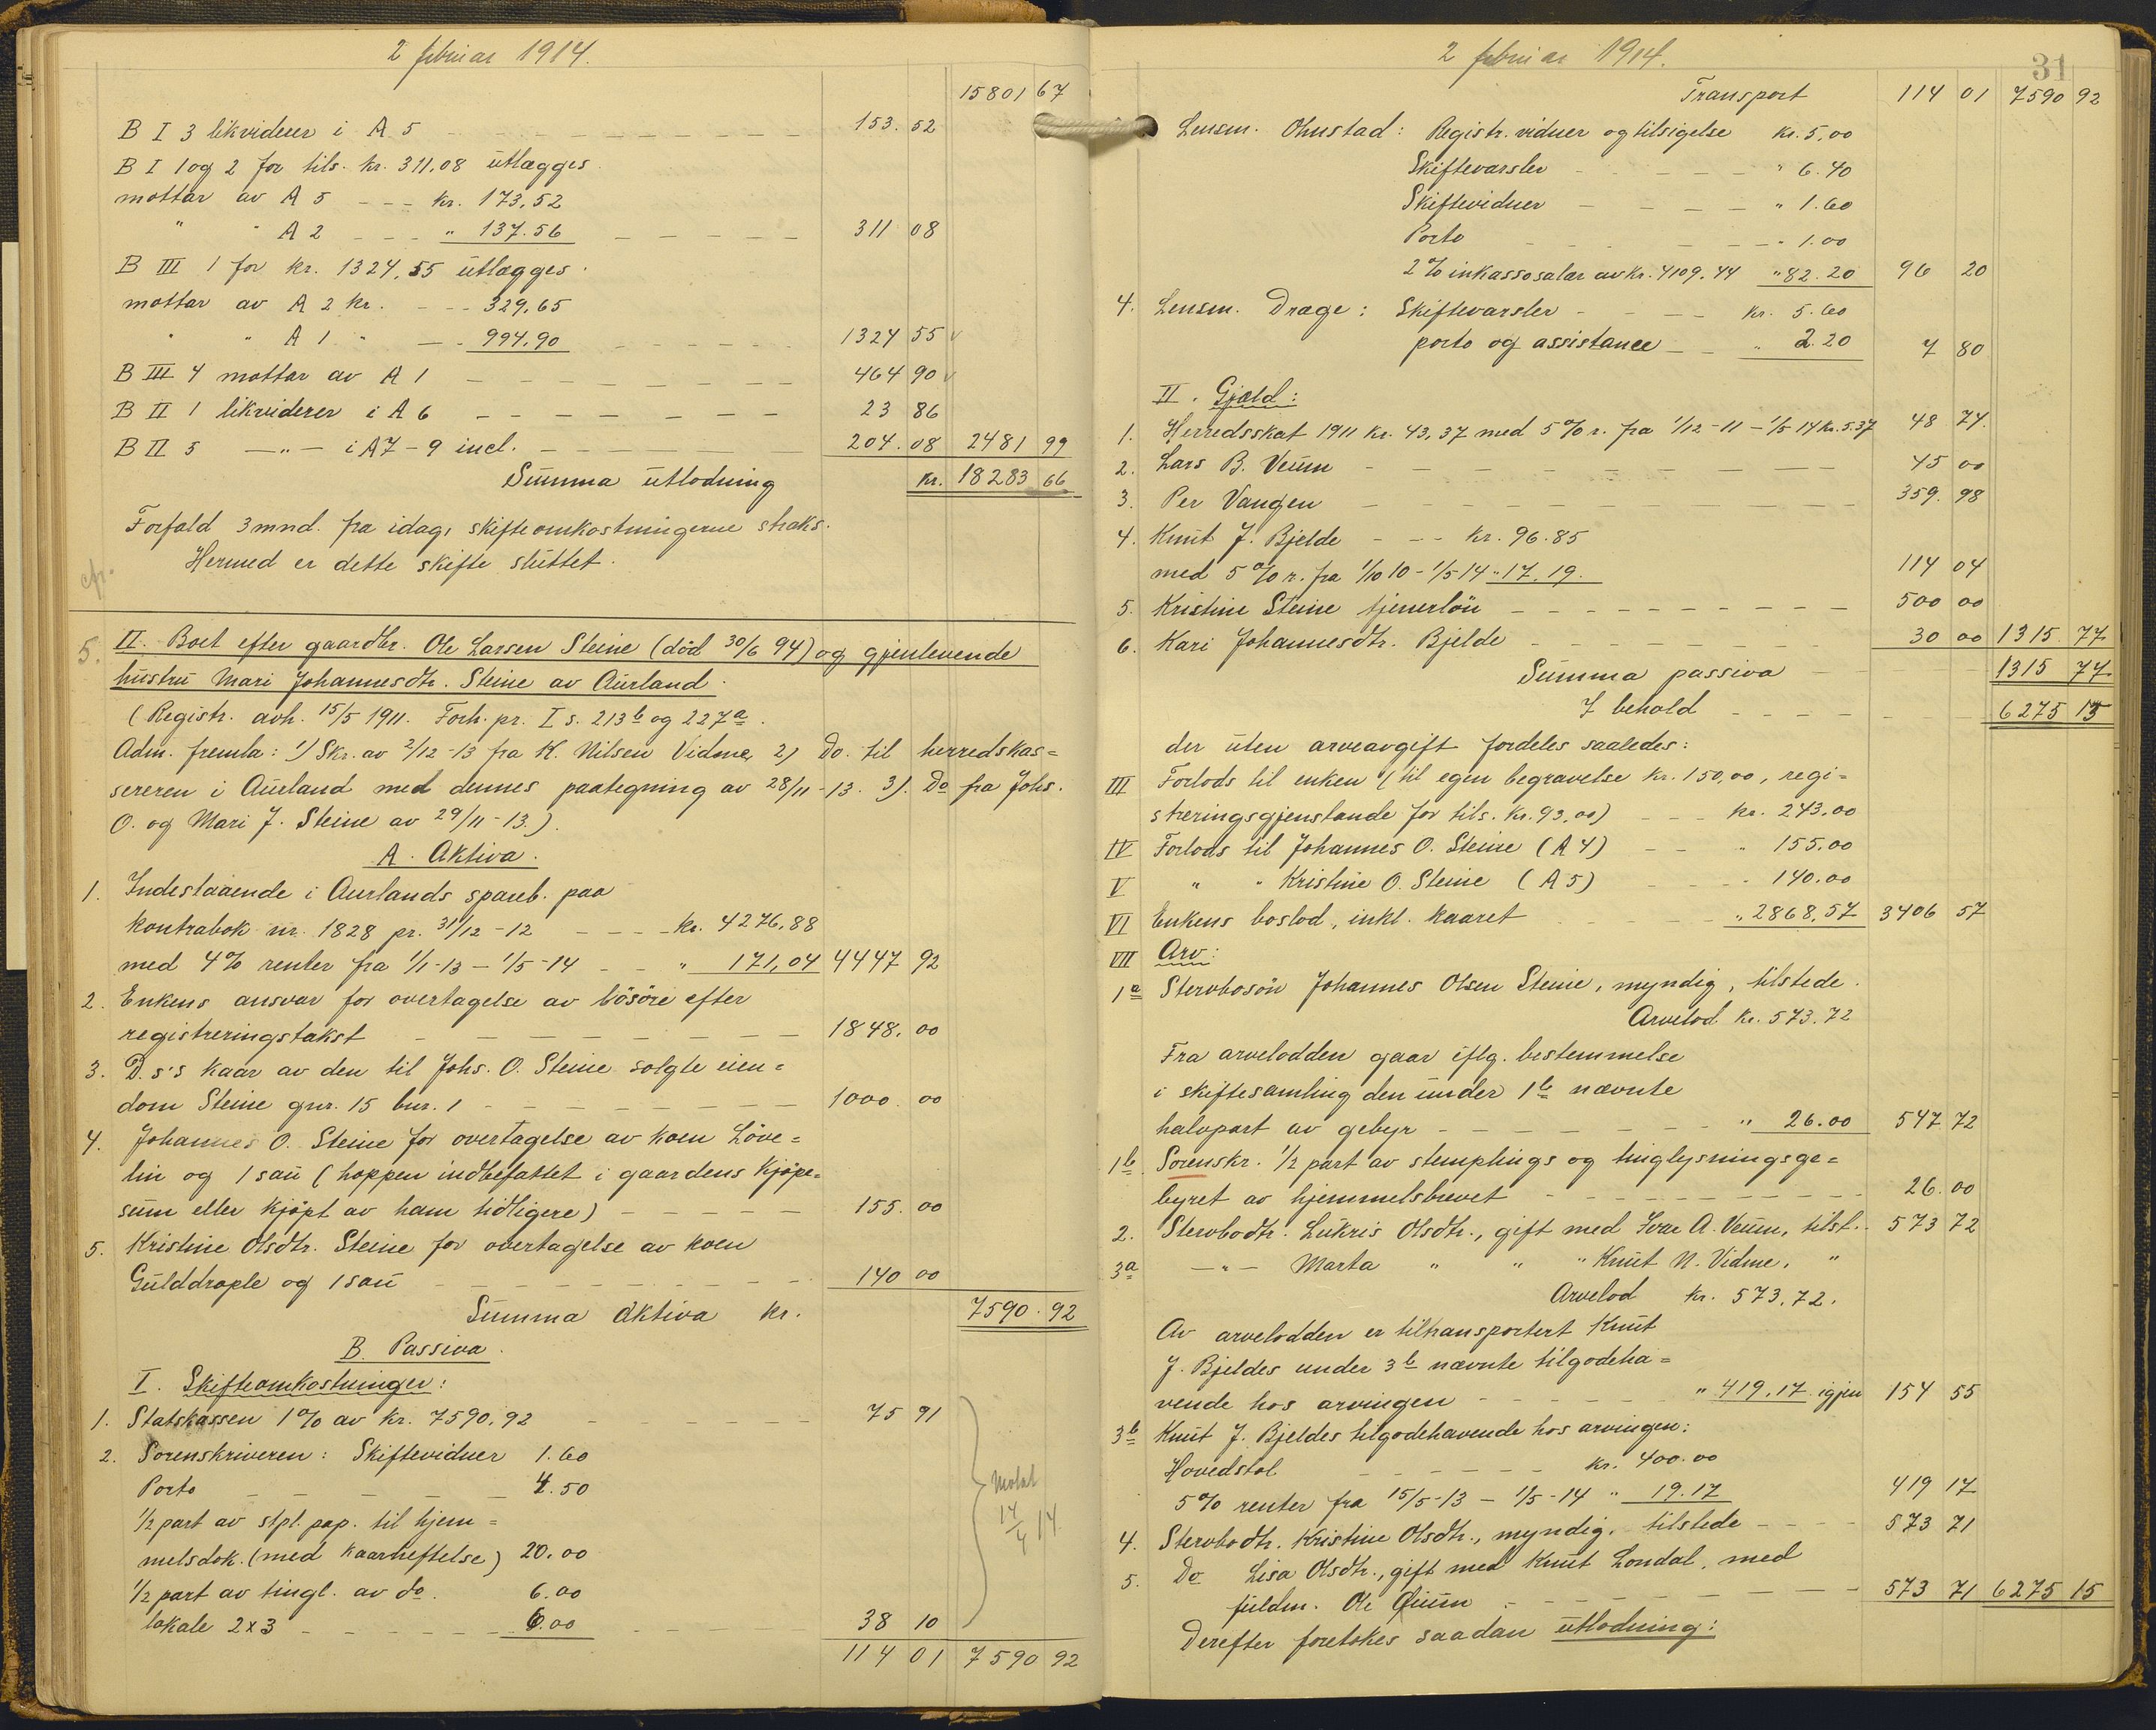 2 februar 1914.
15801 67
B I 3 likviderer i A 5 - - - 153. 52
B I 1 og 2 for tils. kr. 311,08 utlægges
mottar av A 5 - - - kr. 173,52
" " A 2 - - - " 137.56 - - - 311 08
B III 1 for kr. 1324,55 utlægges
mottar av A 2 kr. - - - 329,65
" " A 1 " - - 994,90 - - - 1324 55 v
B III 4 mottar av A 1 - - - 464 90 v
B II 1 likviderer i A 6 - - - 23 86
B II 5 - " - i A 7 - 9 incl. - - - 204. 08 2481 99
Summa utlodning kr. 18283 66
Forfald 3 mnd. fra idag, skifteomkostningerne straks.
Hermed er dette skifte sluttet.
cfr.
5. II. Boet efter gaardbr. Ole Larsen Steine (död 30/6 94) og gjenlevende
hustru Mari Johannesdtr. Steine av Aurland.
(Registr. avh. 15/5 1911. Forh. pr. I s. 213 b og 227 a.
Adm. fremla: 1) Skr. av 2/12-13 fra K. Nilsen Vidme, 2) Do. til herredskas=
sereren i Aurland med dennes paategning av 28/11-13. 3). Do fra Johs.
O. og Mari J. Steine av 29/11-13.)
A. Aktiva.
1. Indestaaende i Aurlands spareb. paa
kontrabok nr. 1828 pr. 31/12-12 - - - kr. 4276,88
med 4% renter fra 1/1-13 - 1/5-14 - - " 171,04 4447 92
2. Enkens ansvar for overtagelse av lösöre efter
registreringstakst - - - 1848. 00
3. D. s's kaar av den til Johs. O. Steine solgte eien=
dom Steine gnr. 15 bnr. 1 - - - 1000. 00
4. Johannes O. Steine for overtagelse av koen Löve=
lin og 1 sau (hoppen indbefattet i gaardens kjöpe=
sum eller kjöpt av ham tidligere) - - - 155. 00
5. Kristine Olsdtr. Steine for overtagelse av koen
Gulddrople og 1 sau - - - 140 00
Summa aktiva kr. 7590. 92
B. Passiva.
I. Skifteomkostninger:
1. Statskassen 1% av kr. 7590,92 - - - 75 91
2. Sorenskriveren: Skifteviduer 1.60
Porto - - - 4.50
1/2 part av stpl. pap. til hjem=
melsdok. (med kaarheftelse) 20.00
1/2 part av tingl. av do. 6.00
lokale 2x3 - - - 6.00 - - - 38 10
114 01 7590 92
14/4 14
2 februar 1914.
31
Transport 114 01 7590 92
Lensm. Ohnstad: Registr. viduer og tilsigelse kr. 5,00
Skiftevarsler - - - " 6.40
Skifteviduer - - - " 1.60
Porto - - - " 1.00
2% inkassosalar av kr. 4109.44 " 82.20 96 20
4. Lensm. Drage: Skiftevarsler - - - kr. 5.60
porto og assistance - - " 2.20 7 80
II. Gjæld:
1. Herredsskat 1911 kr. 43,37 med 5% r. fra 1/12-11 - 1/5 14 kr. 5.37 48 74.
2. Lars B. Veum - - - 45 00
3. Per Vangen - - - 359. 98
4. Knut J. Bjelde - - - kr. 96.85
med 5% r. fra 1/10 10 - 1/5 14 " 17.19. 114 04
5. Kristine Steine tjenerlön - - - 500 00
6. Kari Johannesdtr. Bjelde - - - 30 00 1315. 77
Summa passiva - - 1315 77
I behold - - - 6275 15
der uten arveavgift fordeles saaledes:
III Forlods til enken (til egen begravelse kr. 150,00, regi=
streringsgjenstande for tils. kr. 93,00) - - - kr. 243.00
IV Forlods til Johannes O. Steine (A 4) - - " 155.00
V " " Kristine O. Steine (A 5) - - - 140.00
VI Enkens boslod, inkl. kaaret - - - " 2868,57 3406 57
VII Arv:
1a Stervbosön Johannes Olsen Steine, myndig, tilstede.
Arvelod kr. 573.72
Fra arvelodden gaar iflg. bestemmelse
i skiftesamling den under 1b nævnte
halvpart av gebyr - - - " 26.00 547 72
1b Sorenskr. 1/2 part av stemplings og tinglysningsge=
byret av hjemmelsbrevet - - - 26. 00
2. Stervbodtr. Lukris Olsdtr., gift med Ivar A. Veum, tilst. - 573 72
3a - " - Marta " " " Knut N. Vidme, "
Arvelod kr. 573,72.
Av arvelodden er tiltransportert Knut
J. Bjeldes under 3b nævnte tilgodeha=
vende hos arvingen - - - " 419,17 igjen 154 55
3b Knut J. Bjeldes tilgodehavende hos arvingen:
Hovedstol - - - kr. 400.00
5% renter fra 15/5-13 - 1/5-14 " 19.17 419 17
4. Stervbodtr. Kristine Olsdtr., myndig, tilstede - - - 573 71
5. Do Lisa Olsdtr., gift med Knut Londal, med
fuldm. Ole - - - 573 71 6275 15
Derefter foretokes saadan utlodning: